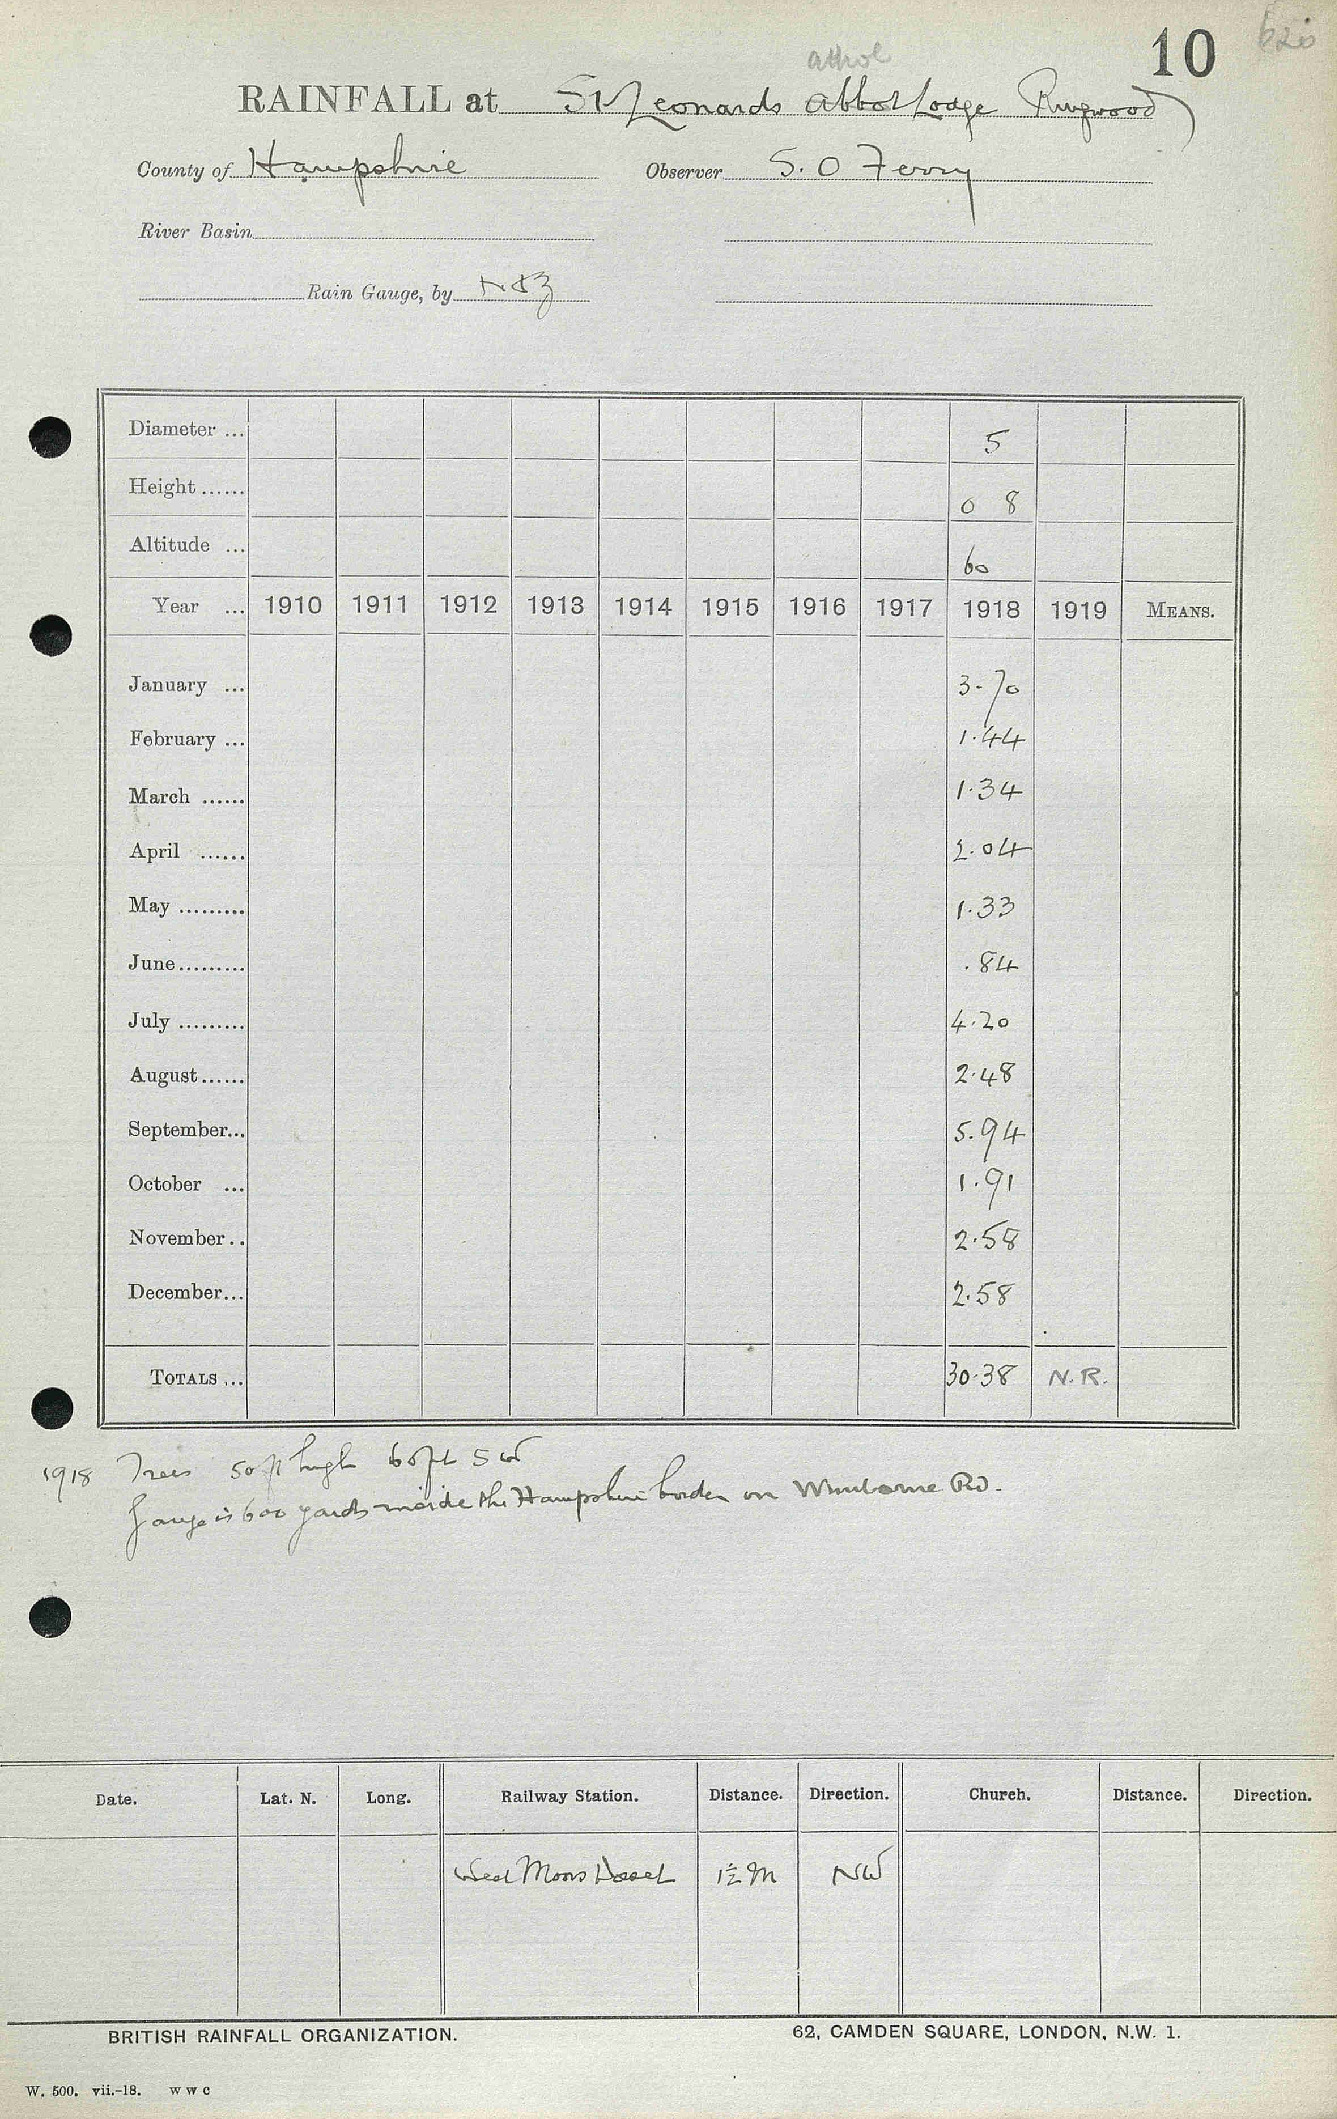 10
athol
RAINFALL at St Leonards Abbot Lodge Ringwood
County of Hampshire Observer S. O Ferry
River Basin
Rain Gauge, by N & Z
Diameter ... 5
Height ...... 0 8
Altitude ... 60
Year ... 1910 1911 1912 1913 1914 1915 1916 1917 1918 1919 MEANS.
January ... 3.70
February ... 1.44
March ...... 1.34
April ...... 2.04
May ......... 1.33
June......... .84
July ......... 4.20
August...... 2.48
September... 5.94
October ... 1.91
November.. 2.58
December... 2.58
TOTALS ... 30.38 N.R.
1918 Trees 50 ft high 60 ft SW
Gauge is 600 yards inside the Hampshire border on Wimborne Rd.
Date. Lat. N. Long. Railway Station. Distance. Direction. Church. Distance. Direction.
West Moors Dorset 1½ m NW
BRITISH RAINFALL ORGANIZATION. 62, CAMDEN SQUARE, LONDON, N.W. 1.
W. 500. vii.-18. W W C